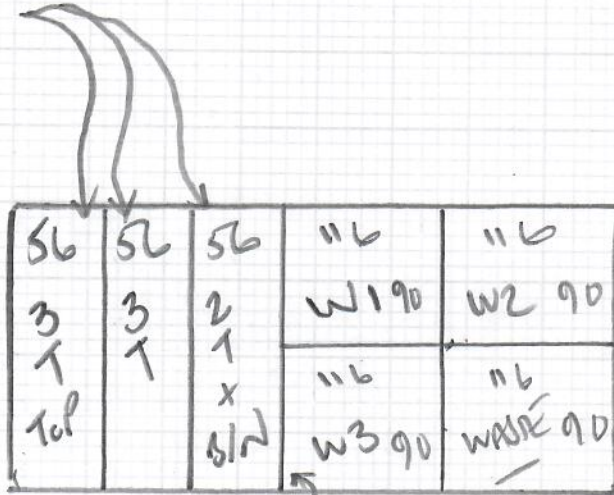 56
3
T
TOP
56
3
T
56
2
T
X
BIN
116
W1 90
116
W2 90
116
W3 90
116
WASTE 90